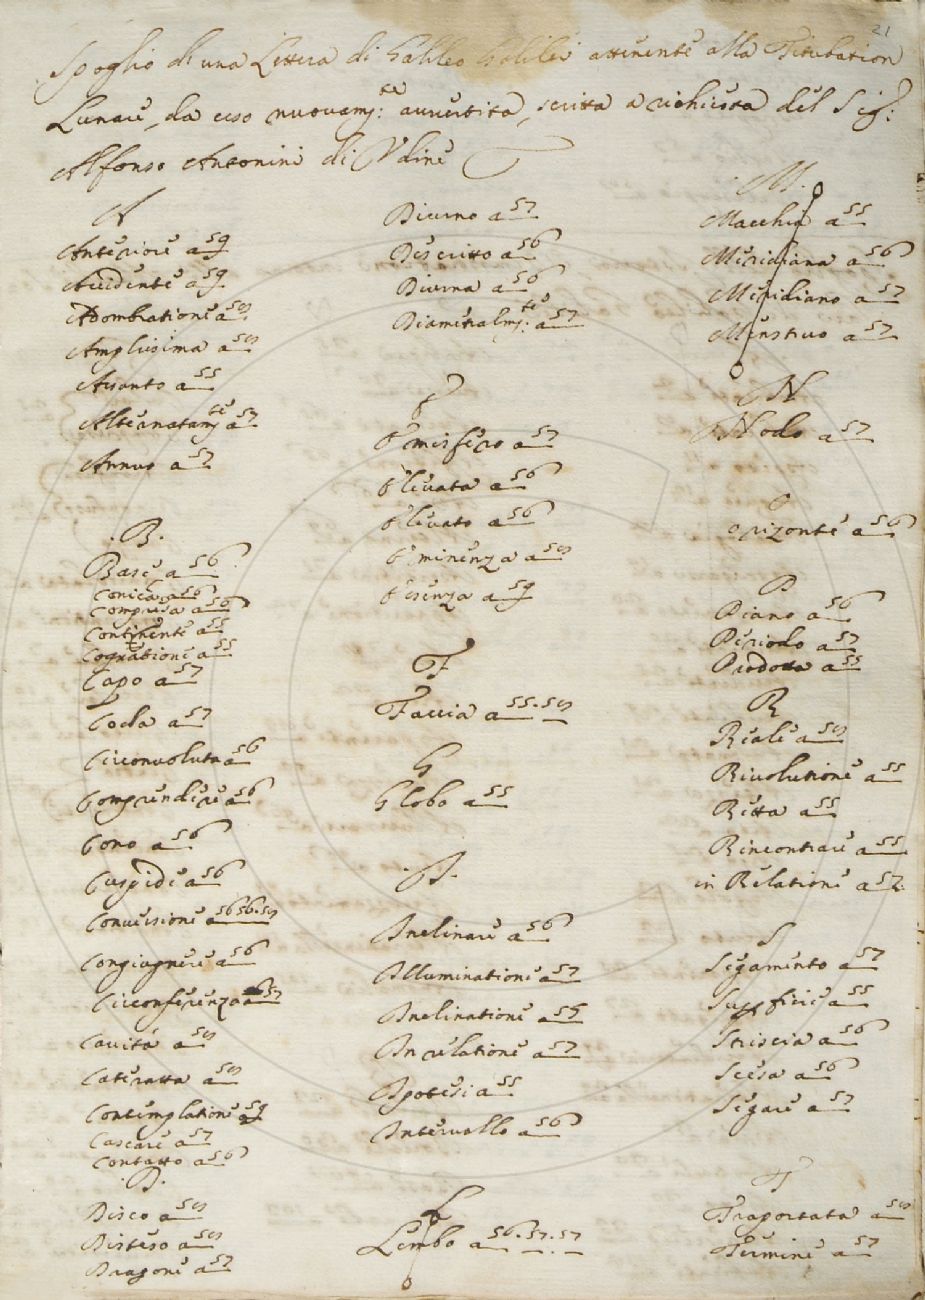 21
Spoglio di una Lettera di Galileo Galilei attenente alla Titubation
Lunare, da esso nuovam:te avvertita, scritta a richiesta del Sig:
Alfonso Antonini di Udine
A
Anteriore a 59
Accidente a 59
Adombratione a
Amplissima a
Assunto a 55
Alternatam:te a 57
Annuo a 57
.B.
Base a 56
Conica a 56
Compresa a 56
Continente a 55
Cognatione a 55
Capo a 57
Coda a 57
Circonvoluta a 56
Comprendere a 56
Cono a 56
Cuspide a 56
Conversione a 56 56.
Congiugnere a 56
Circonferenza a 57
Cavità a
Cateratta a
Contemplatione a 59
Cascare a 57
Contatto a 56
.D.
Disco a
Disteso a
Dragone a 57
Diurno a 57
Descritto a 56
Diurna a 56
Diametralm:te a 57
E
Emisfero a 57
Elevata a 56
Elevato a 56
Eminenza a
Essenza a 59
F
Faccia a 55.
G
Globo a 55
.I.
Inclinare a 56
Illuminatione a 57
Inclinatione a
In relatione a 57
Ipotesi a 55
Intervallo a 56
L
Lembo a 56. 57. 57
.M.
Macchie a 55
Meridiana a 56
Meridiano a 57
Menstruo a 57
N
Nodo a 57
O
Orizonte a 56
P
Piano a 56
Periodo a 57
Prodotta a 55
R
Reale a
Rivolutione a 55
Retta a 55
Rincontrare a 55
in Relatione a 57.
S
Segamento a 57
Superficie a 55
Striscia a 56
Scesa a 56
Segare a 57
T
Traportata a
Termine a 57